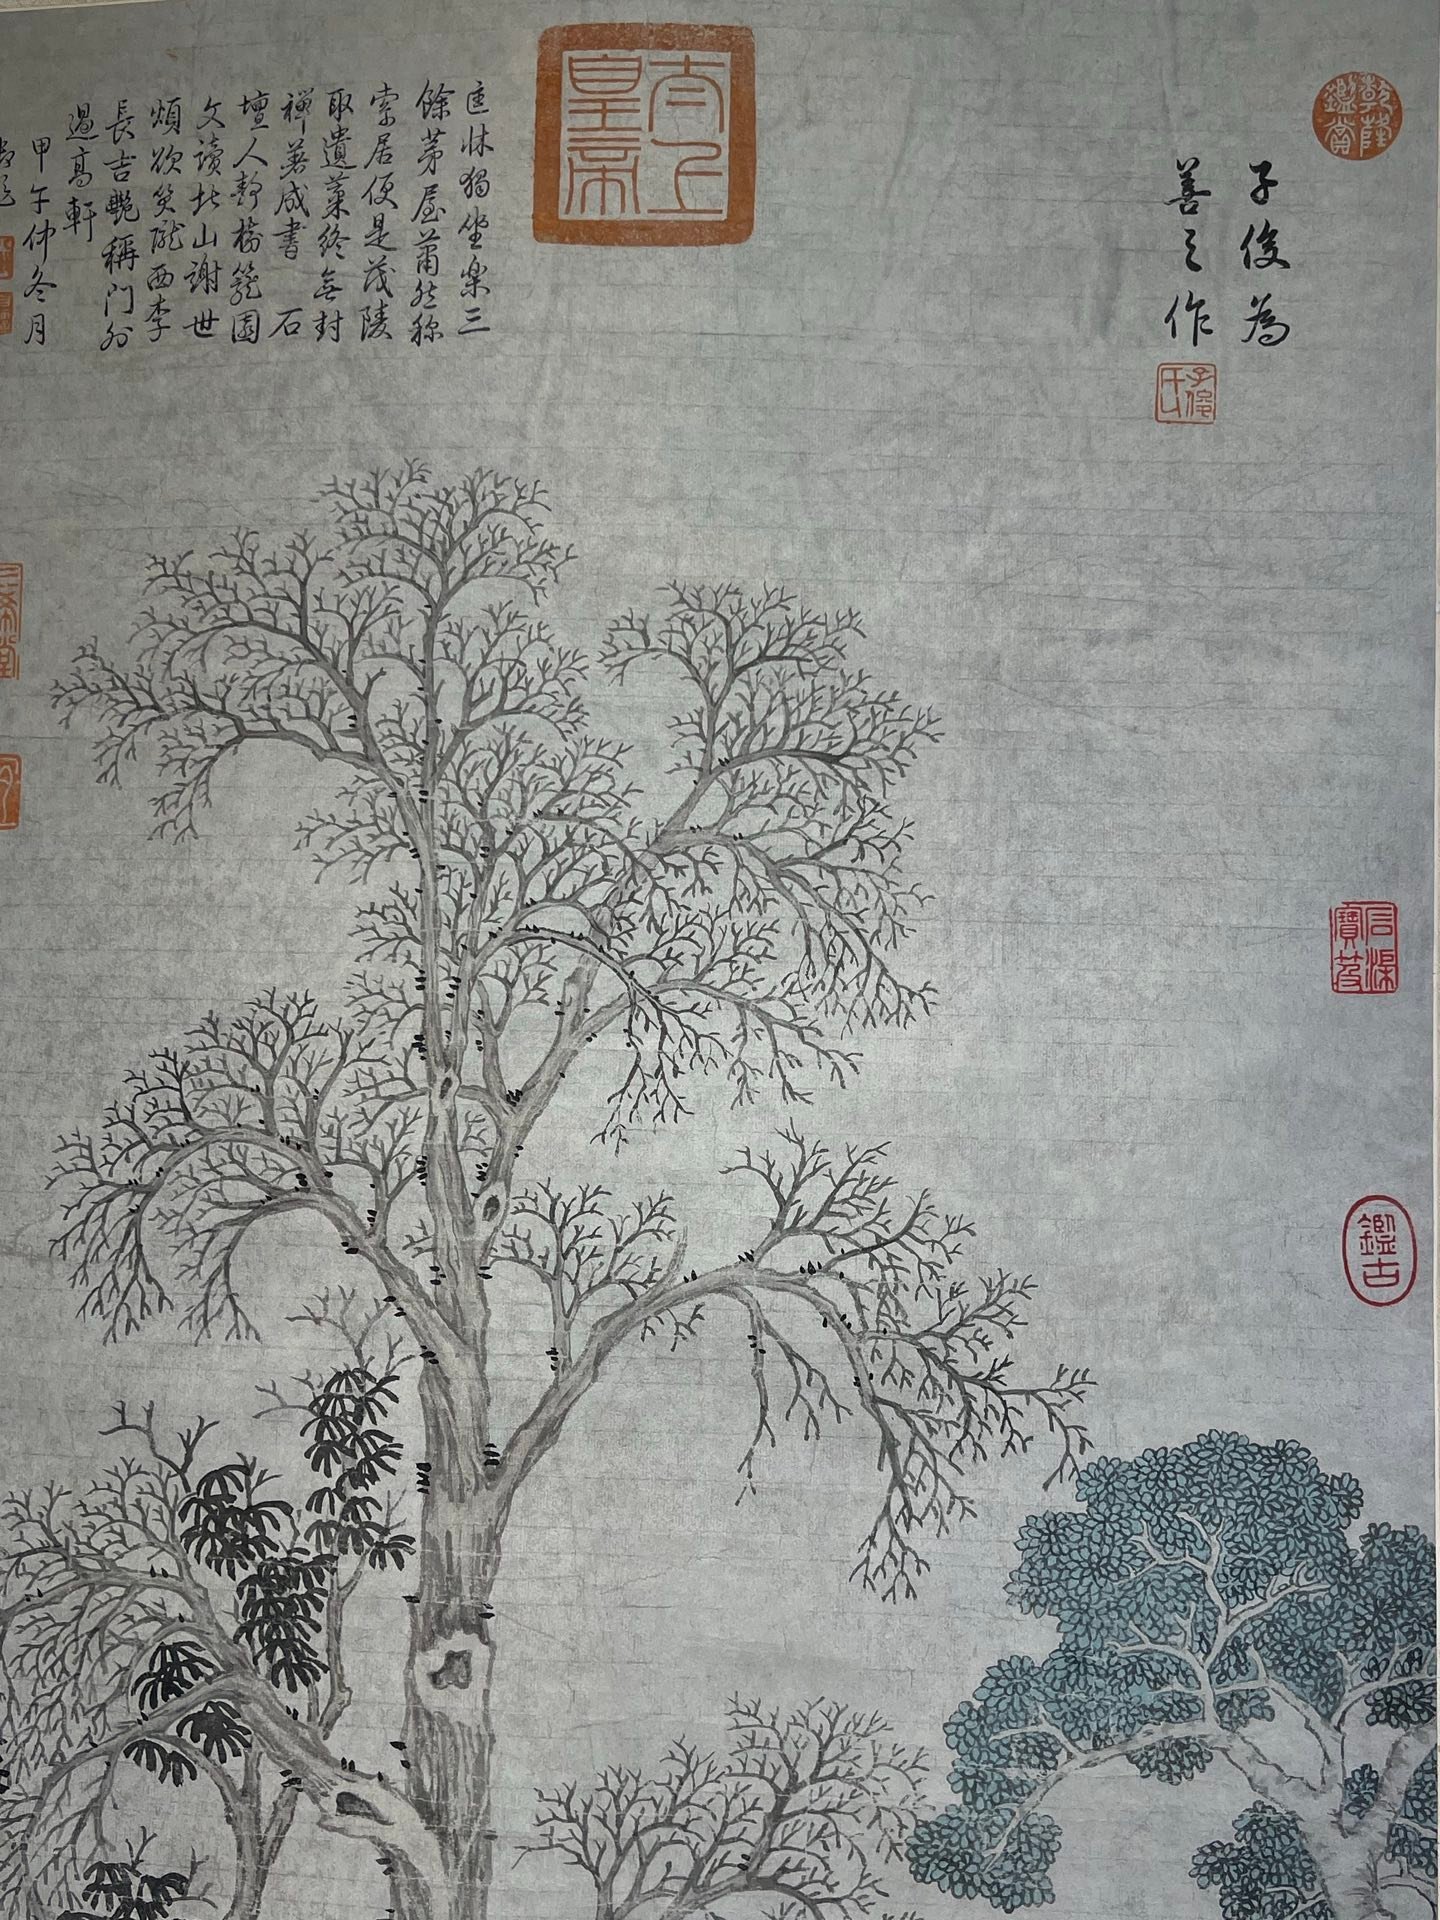 乾隆鑑賞
子俊為
善之作
太上皇帝
匡牀獨坐樂三
餘茅屋蕭然稱
索居便是茂陵
取遺藁終無封
禪著成書 石
壇人靜樹籠園
文讀北山謝世
煩欲笑隴西李
長吉艷稱門外
過高軒
甲午仲冬月
御題
三希堂
石渠寶笈
鑑古